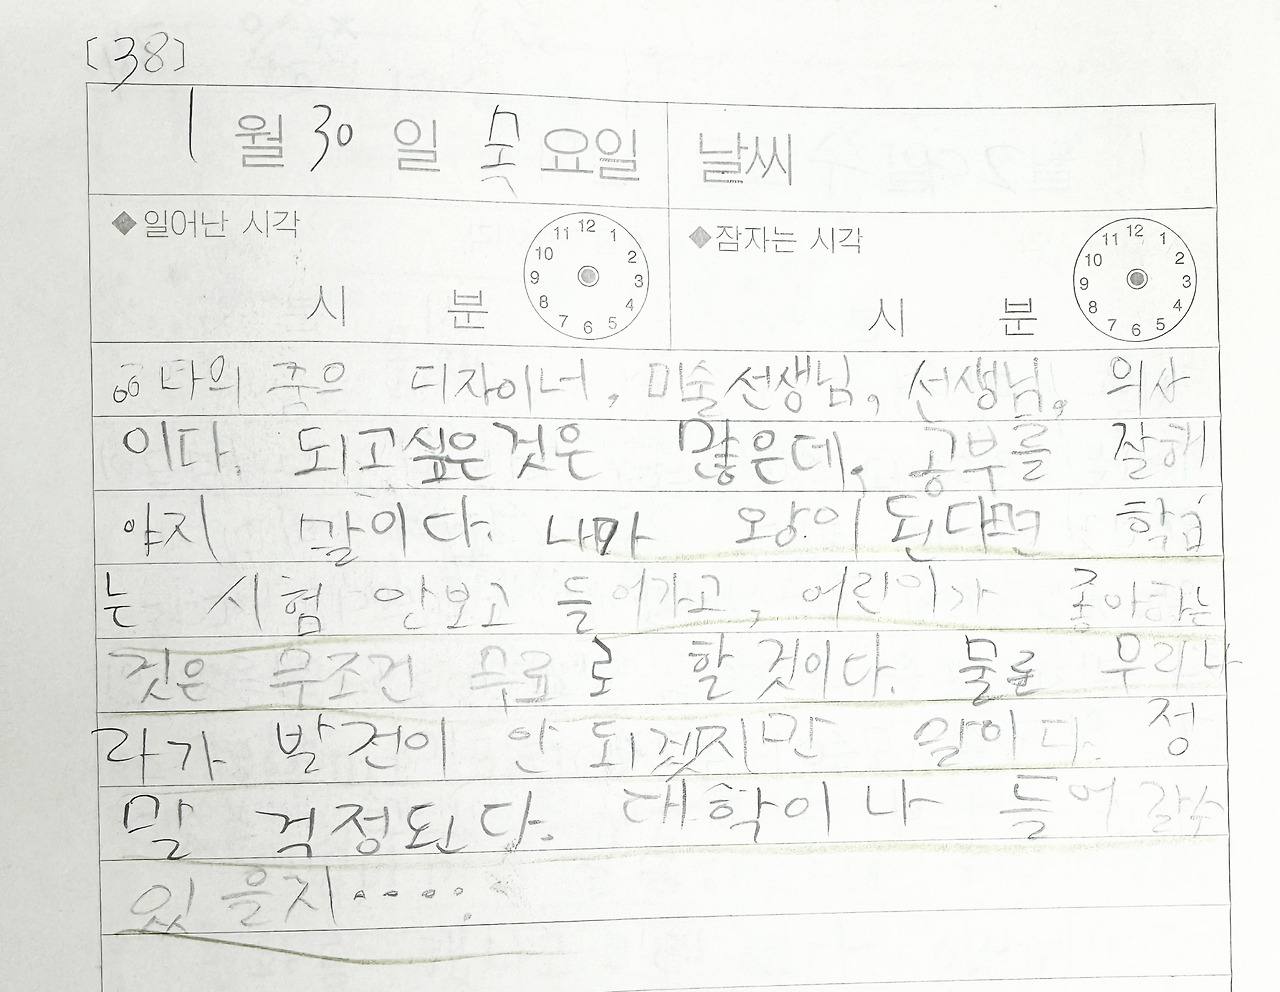 [38]
1월 30일 목요일 날씨
◆일어난 시각 ◆잠자는 시각
11 12 1 10 2 9 3 8 4 7 6 5
11 12 1 10 2 9 3 8 4 7 6 5
시 분 시 분
나의 디자이너, 미술선생님, 선생님, 의사
이다. 되고싶은것은 많은데, 공부를 잘해
야지 말이다. 내가 왕이 된다면 학교
는 시험 안보고 들어가고, 어린이가 좋아하는
것은 무조건 무료로 할 것이다. 물론 우리나
라가 발전이 안 되겠지만 말이다. 정
말 걱정된다. 대학이나 들어 갈수
있을지.....